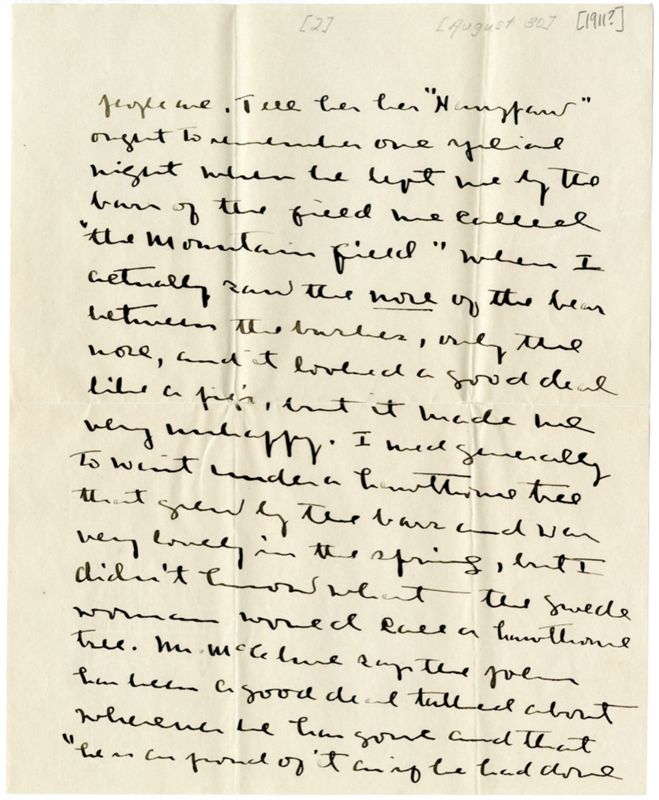 [2] [August 30] [1911?]
people are. Tell her her "
ought to remember one special
night when he kept me by the
bars of the field we called
"the Mountain field" when I
actually saw the nose of the bear
between the bushes, only the
nose, and it looked a good deal
like a pig's, but it made me
very unhappy. I used generally
to wait under a hawthorne tree
that grew by the bars and was
very lovely in the spring, but I
didn't know what the swede
woman would call a hawthorne
tree. Mr. McClure says the poem
has been a good deal talked about
wherever he has gone and that
"he is as proud of it as if he had done